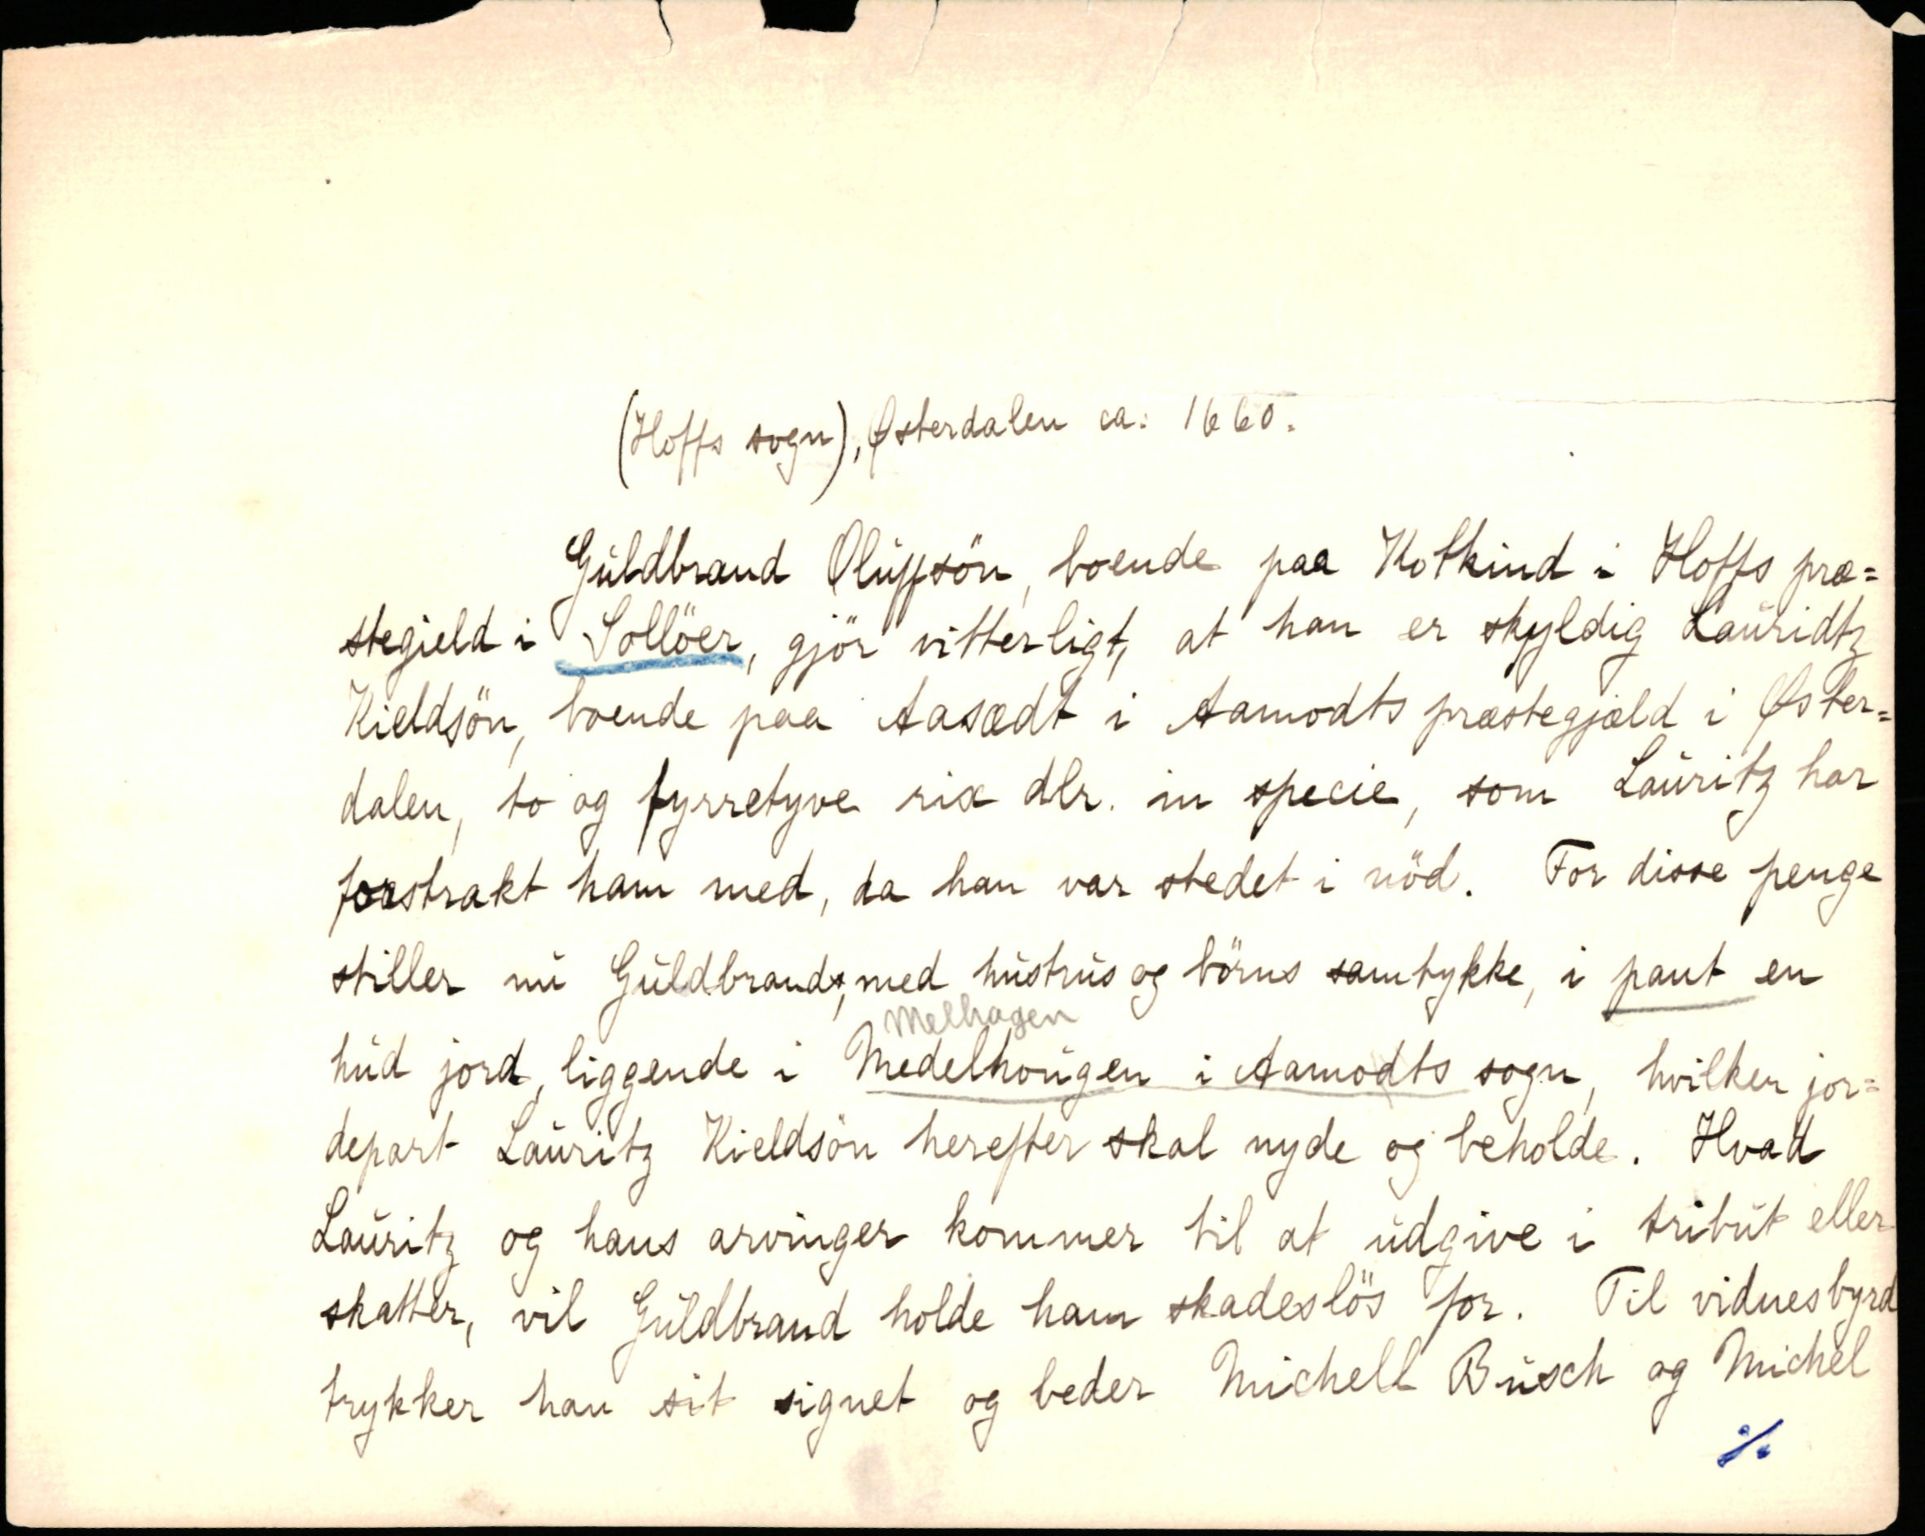 (Hoffs sogn), Østerdalen ca: 1660.
Guldbrand Oluffsön, boende paa Kotkind i Hoffs præ=
stegield i Sollöer, gjör vitterligt, at han er skyldig Lauridtz
Kieldsön, boende paa Aasædt i Aamodts præstegjæld i Øster=
dalen, to og fyrretyve rix dlr. in specie, som Lauritz har
forstrakt ham med, da han var stedet i nöd. For disse penge
stiller nu Guldbrand, med hustrus og börns samtykke, i pant en
Melhagen
hud jord, liggende i Medelhougen i Aamodts sogn, hvilken jor=
depart Lauritz Kieldsön herefter skal nyde og beholde. Hvad
Lauritz og hans arvinger kommer til at udgive i tribut eller
skatter, vil Guldbrand holde ham skadeslös for. Til vidnesbyrd
trykker han sit signet og beder Michell Busch og Michel
./.